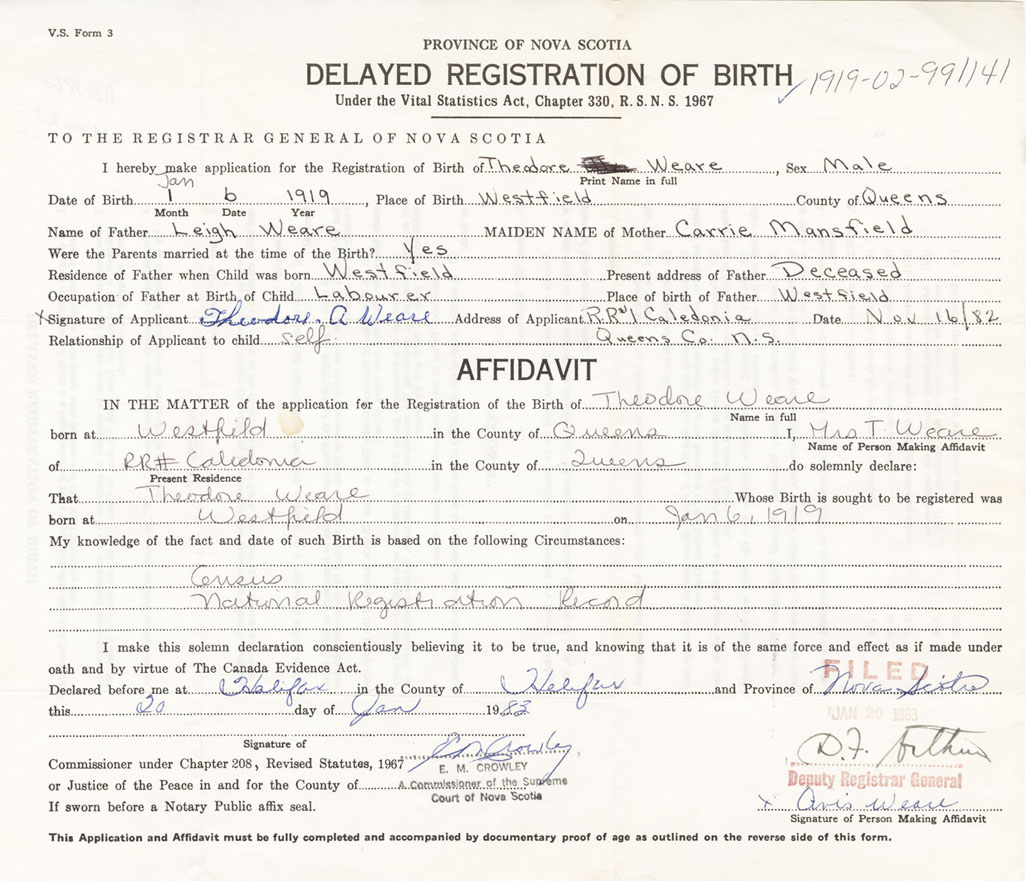 V.S. Form 3
PROVINCE OF NOVA SCOTIA
DELAYED REGISTRATION OF BIRTH
1919-02-991141
Under the Vital Statistics Act, Chapter 330, R.S.N.S. 1967
TO THE REGISTRAR GENERAL OF NOVA SCOTIA
I hereby make application for the Registration of Birth of Theodore Weare, Sex Male
Print Name in full
Jan
Date of Birth 1 6 1919, Place of Birth Westfield County of Queens
Month Date Year
Name of Father Leigh Weare MAIDEN NAME of Mother Carrie Mansfield
Were the Parents married at the time of the Birth? Yes
Residence of Father when Child was born Westfield Present address of Father Deceased
Occupation of Father at Birth of Child Labourer Place of birth of Father Westfield
x Signature of Applicant Theodore. A Weare Address of Applicant R.R#1 Caledonia Date Nov 16/82
Relationship of Applicant to child self. Queens Co. N.S.
AFFIDAVIT
IN THE MATTER of the application for the Registration of the Birth of Theodore Weare
Name in full
born at Westfield in the County of Queens I, Mrs T. Weare
Name of Person Making Affidavit
of RR# Caledonia in the County of Queens do solemnly declare:
Present Residence
That Theodore Weare Whose Birth is sought to be registered was
born at Westfield on Jan 6, 1919
My knowledge of the fact and date of such Birth is based on the following Circumstances:
Census
National Registration Record
I make this solemn declaration conscientiously believing it to be true, and knowing that it is of the same force and effect as if made under
oath and by virtue of The Canada Evidence Act.
FILED
Declared before me at Halifax in the County of Halifax and Province of Nova Scotia
this 20 day of Jan 1983
JAN 20 1983
Signature of E M Crowley
Commissioner under Chapter 208, Revised Statutes, 1967
E. M. CROWLEY
or Justice of the Peace in and for the County of
A Commissioner of the Supreme
Court of Nova Scotia
D.F. Arthur
Deputy Registrar General
If sworn before a Notary Public affix seal.
x Avis Weare
Signature of Person Making Affidavit
This Application and Affidavit must be fully completed and accompanied by documentary proof of age as outlined on the reverse side of this form.